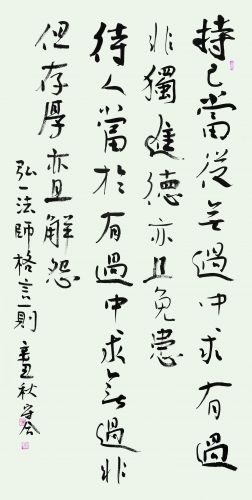 持己當從無過中求有過
非獨進德亦且免患
待人當於有過中求無過非
但存厚亦且解怨
弘一法師格言一則
辛丑秋